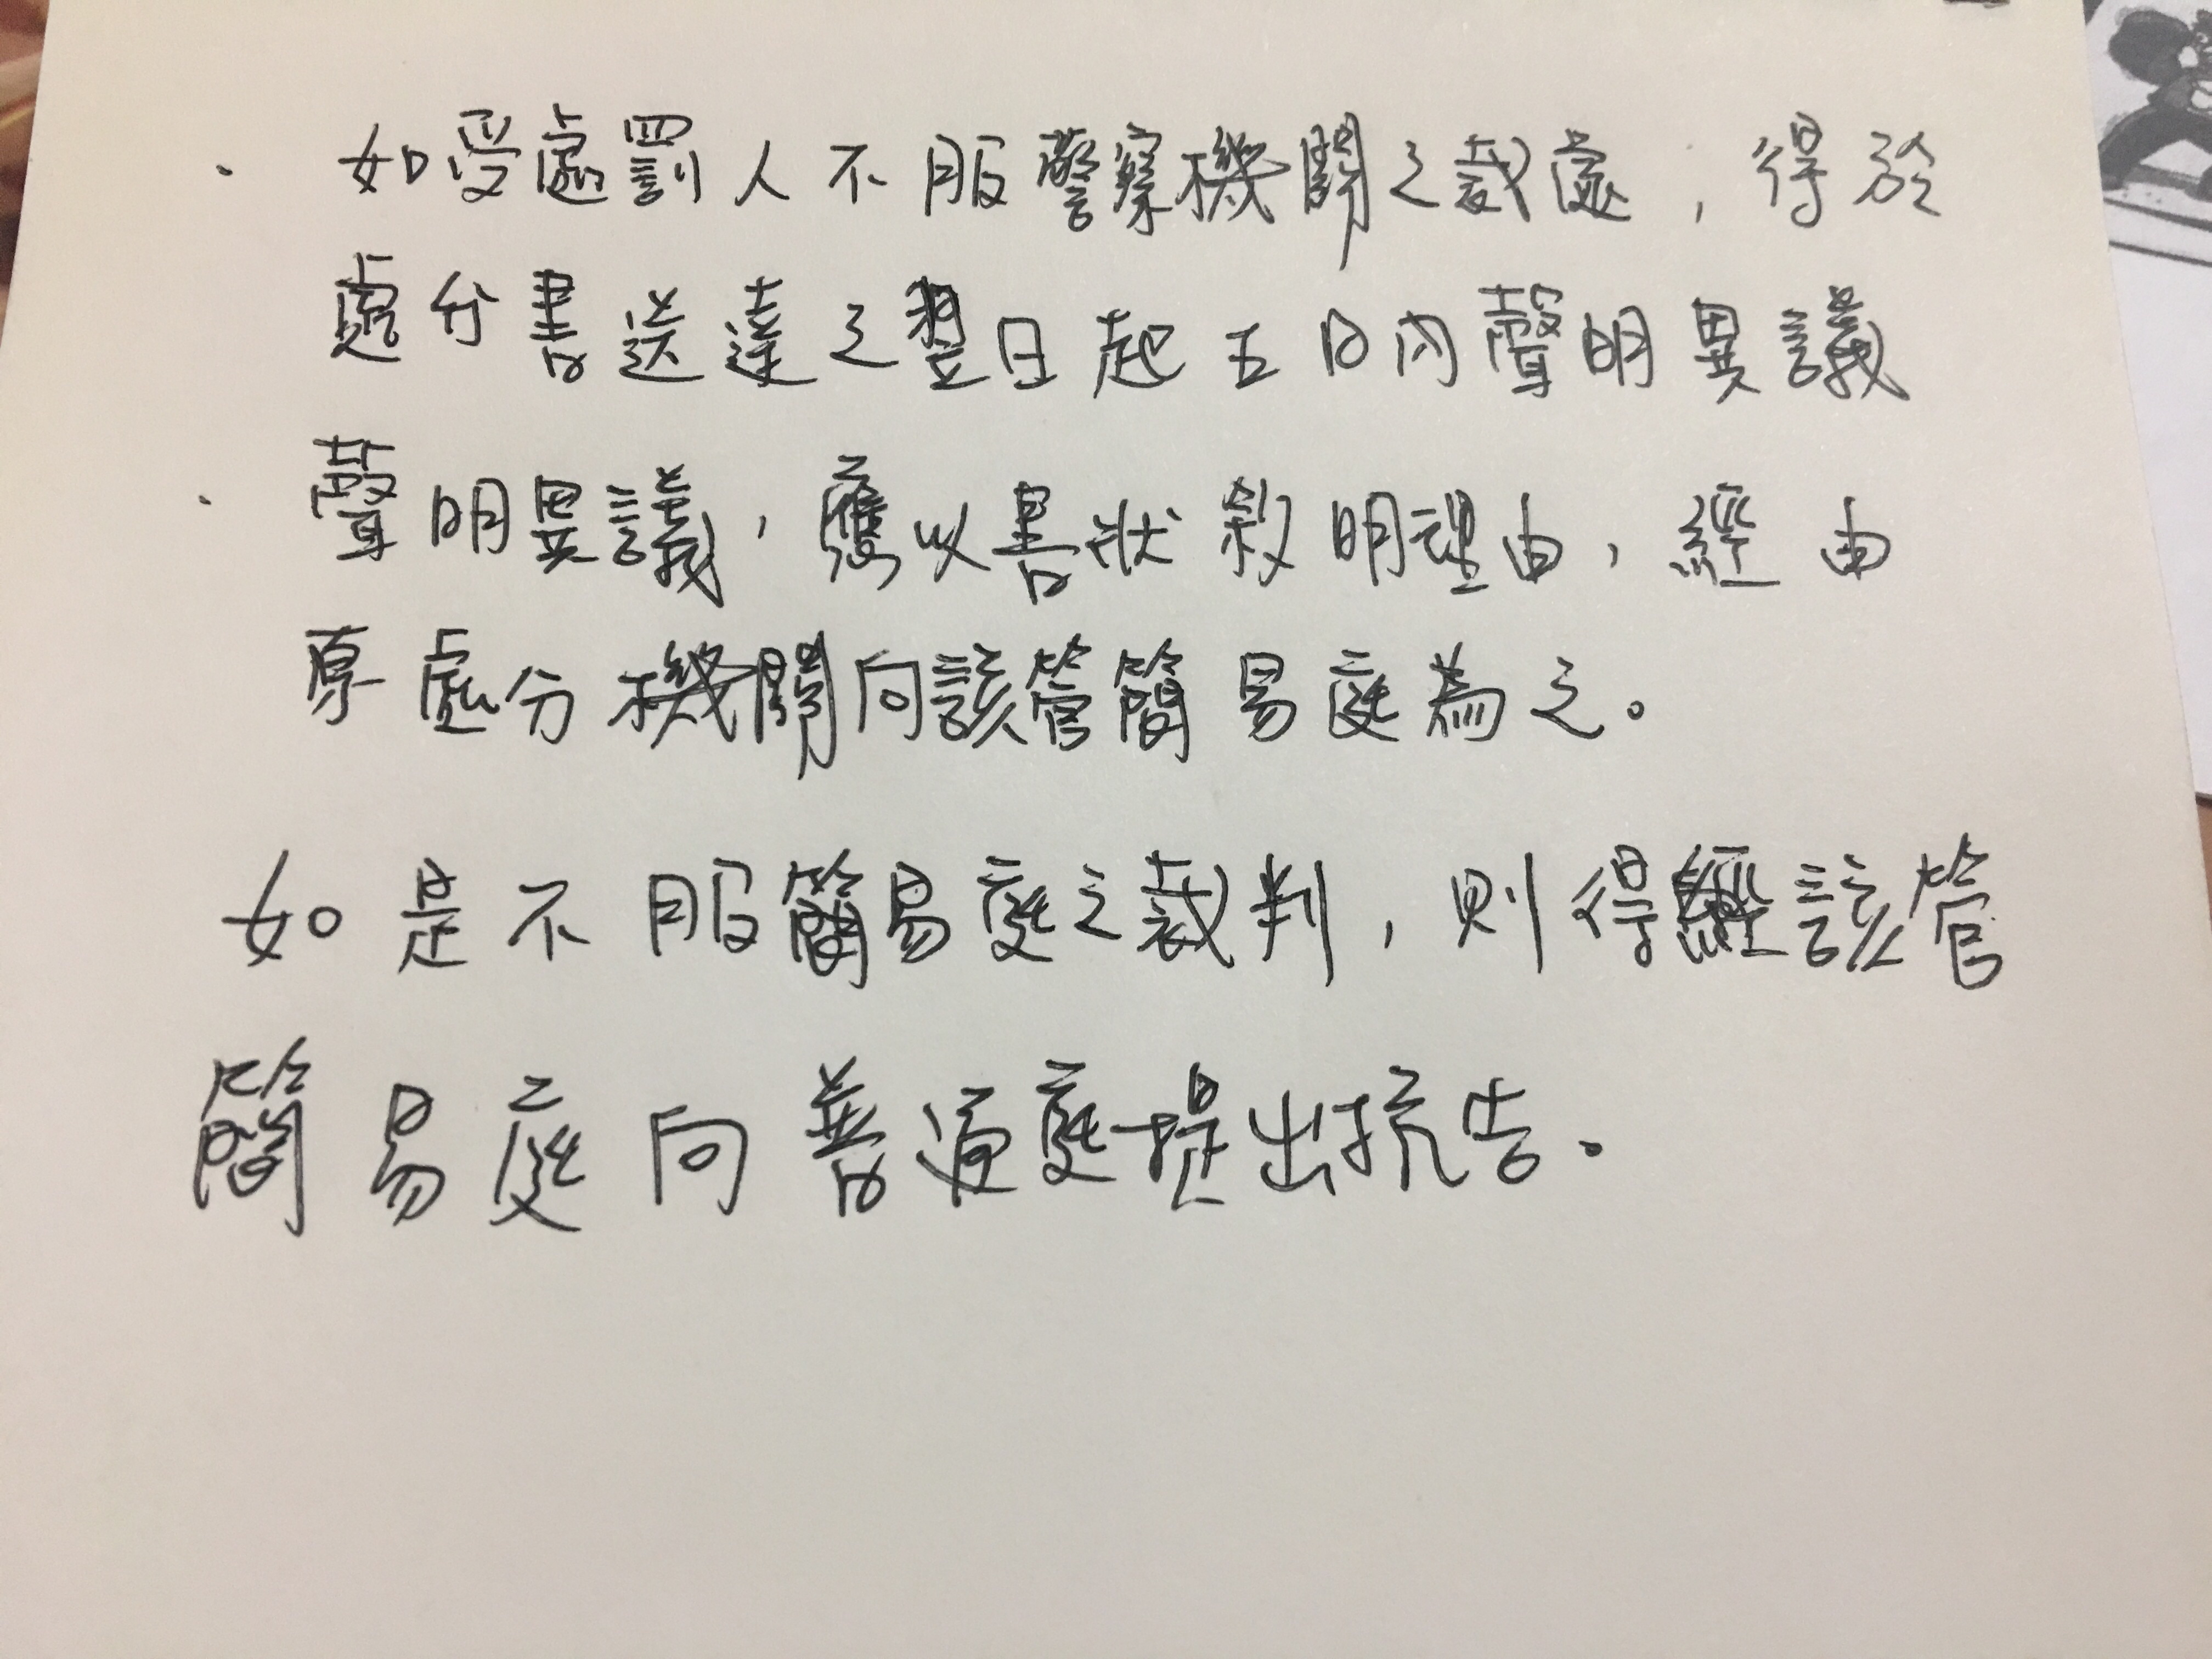 · 如受處罰人不服警察機關之裁處，得於
處分書送達之翌日起五日內聲明異議
· 聲明異議，應以書狀敘明理由，經由
原處分機關向該管簡易庭為之。
如是不服簡易庭之裁判，則得經該管
簡易庭向普通庭提出抗告。